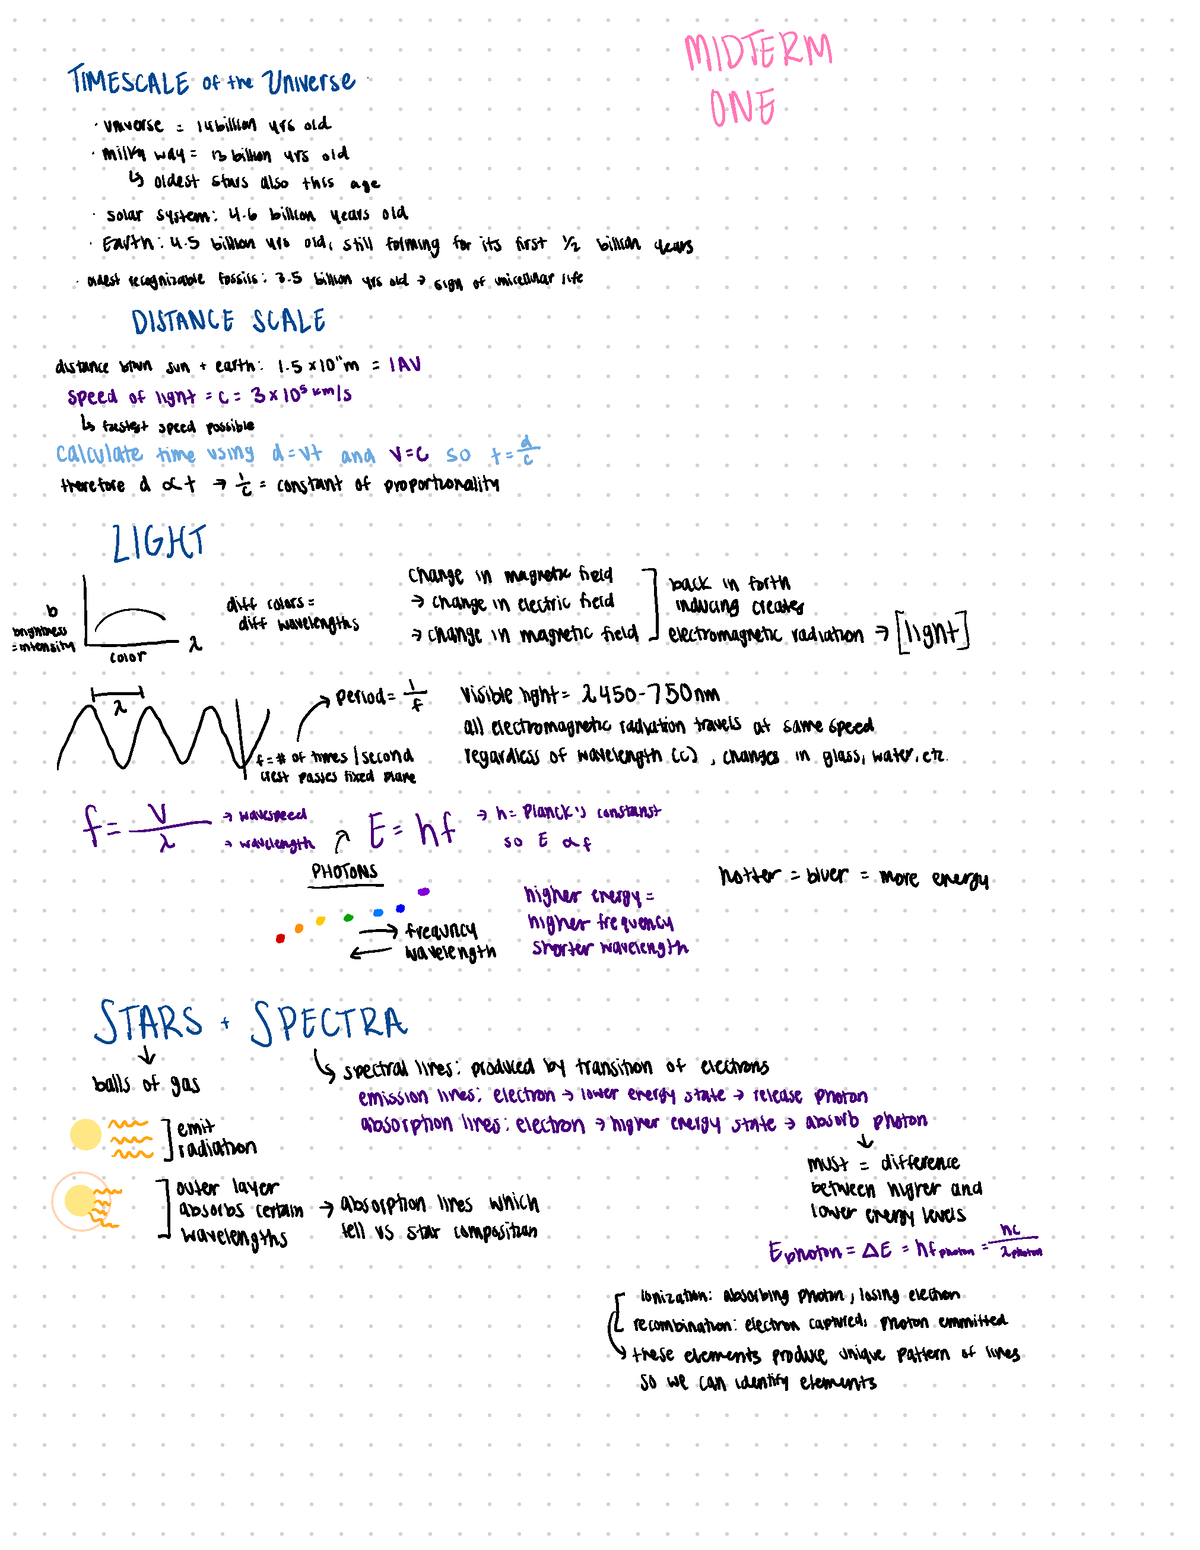 MIDTERM
ONE
TIMESCALE of the Universe
· universe = 14 billion yrs old
· milky way = 13 billion yrs old
↳ oldest stars also this age
· solar system: 4.6 billion years old
· Earth: 4.5 billion yrs old, still forming for its first 1/2 billion years
· oldest recognizable fossils: 3.5 billion yrs old → sign of unicellular life
DISTANCE SCALE
distance btwn sun + earth: 1.5 x 10¹¹ m = 1 AU
speed of light = c = 3 x 10⁵ km/s
↳ fastest speed possible
calculate time using d=vt and v=c so t = d/c
therefore d ∝ t → 1/c = constant of proportionality
LIGHT
b
brightness
= intensity
color
λ
diff colors =
diff wavelengths
change in magnetic field
→ change in electric field
→ change in magnetic field
back in forth
inducing creates
electromagnetic radiation → [light]
λ
→ period = 1/f
f = # of times / second
crest passes fixed plane
visible light = λ 450-750nm
all electromagnetic radiation travels at same speed
regardless of wavelength (c), changes in glass, water, etc.
f = v/λ
→ wavespeed
→ wavelength
E = hf
→ h = Planck's constanst
so E ∝ f
PHOTONS
→ frequncy
← wavelength
higher energy =
higher frequency
shorter wavelength
hotter = bluer = more energy
STARS + SPECTRA
↓
balls of gas
emit
radiation
outer layer
absorbs certain
wavelengths
→ absorption lines which
tell us star composition
↳ spectral lines: produced by transition of electrons
emission lines: electron → lower energy state → release photon
absorption lines: electron → higher energy state → absorb photon
↓
must = difference
between higher and
lower energy levels
E photon = ΔE = hf photon = hc/λ photon
ionization: absorbing photon, losing electron
recombination: electron captured, photon emmitted
→ these elements produce unique pattern of lines
so we can identify elements